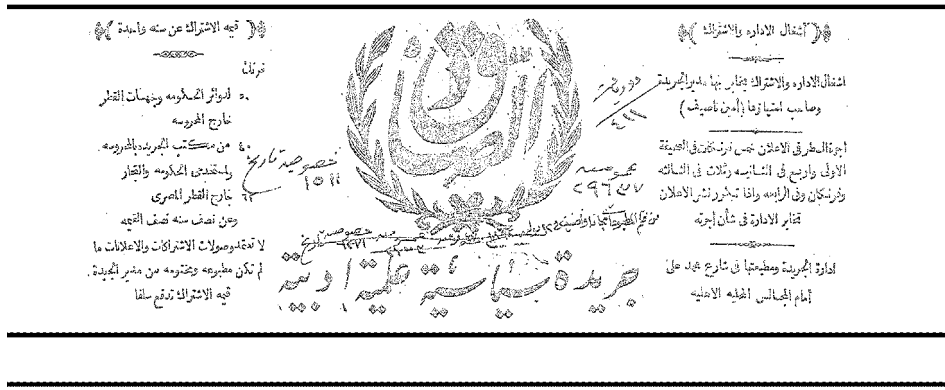 أشغال الاداره والاشتراك
اشغال الاداره والاشتراك يخابر بها مدير الجريدة
وصاحب امتيازها (أمين ناصيف)
اجرة السطر فى الاعلان خمس فرنكات فى الصحيفة
الاولى واربع فى الثانيه وثلاث فى الثالثه
وفرنكان وفى الرابعه واذا تكرر نشر الاعلان
تخابر الادارة فى شأن أجرته
ادارة الجريدة ومطبعتها فى شارع محمد على
أمام المجالس المحليه الاهليه
الصادق
جريدة سياسية علمية ادبية
قيمه الاشتراك عن سنه واحدة
فرنك
٥٠ لدوائر الحكومه وجهات القطر
خارج المحروسه
٤٠ من مكتب الجريده بالمحروسه
ولمستخدمى الحكومه والتجار
٦٢ خارج القطر المصرى
وعن نصف سنه نصف القيمه
لا تعتمد وصولات الاشتراكات والاعلانات ما
لم تكن مطبوعه ومختومه من مدير الجريدة
قيمه الاشتراك تدفع سلفا
خصوصية تاريخ
١٥١١
عموميه
٢٩٦٣٧